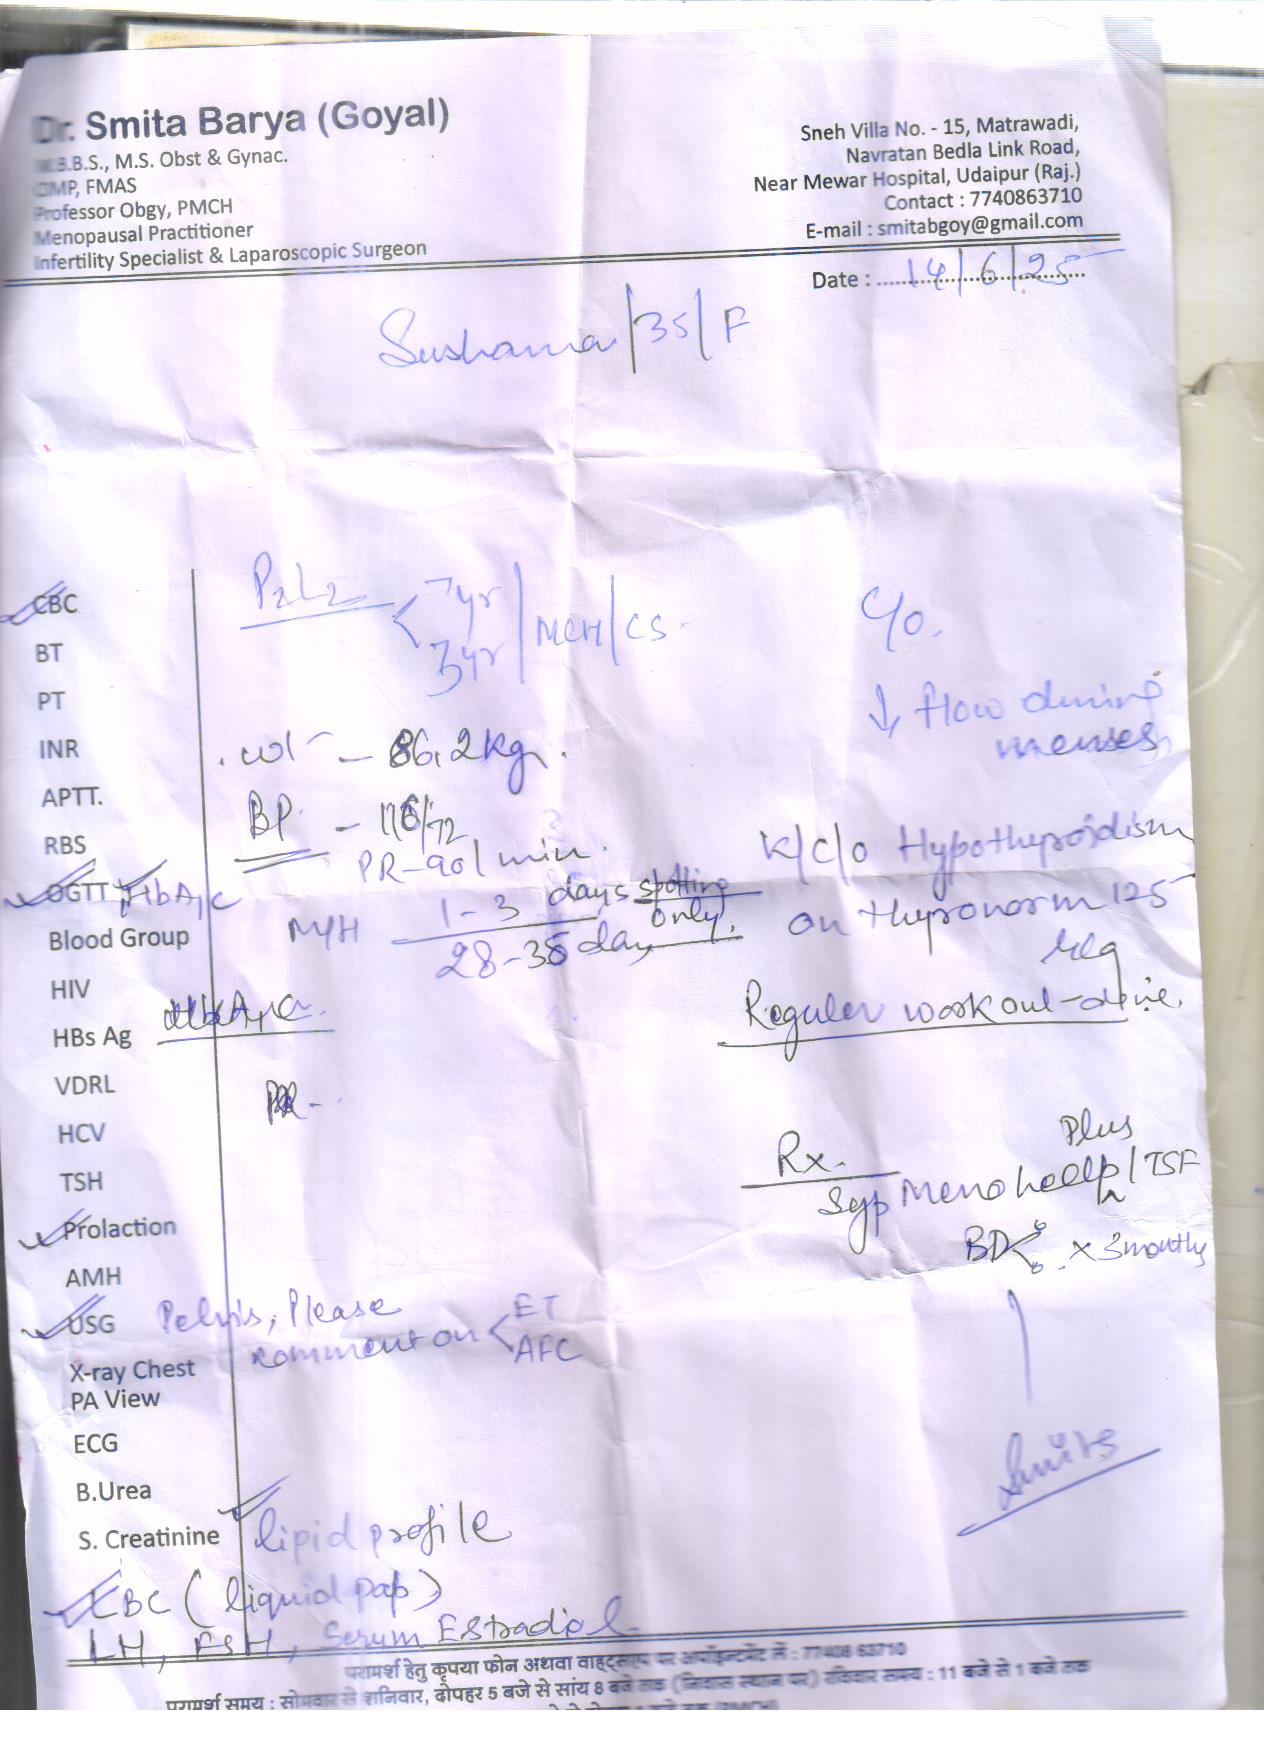 Dr. Smita Barya (Goyal)
M.B.B.S., M.S. Obst & Gynac.
CIMP, FMAS
Professor Obgy, PMCH
Menopausal Practitioner
Infertility Specialist & Laparoscopic Surgeon
Sneh Villa No. - 15, Matrawadi,
Navratan Bedla Link Road,
Near Mewar Hospital, Udaipur (Raj.)
Contact : 7740863710
E-mail : smitabgoy@gmail.com
Date : 14/6/25
Sushama/35/F
P2L2 < 7yr / 3yr / MCH/CS
wt - 86.2kg.
BP - 116/72
PR-90/min.
M/H 1-3 days spotting only.
28-35 day
PR-
C/o.
↓ flow during
menses
K/C/O Hypothyroidism
on thyronorm 125
Reguler workout-
Rx.
Plus
Syp Menohelp/TSF
BD x 3monthly
CBC
BT
PT
INR
APTT.
RBS
OGTT HbA1c
Blood Group
HIV
HbA1c
HBs Ag
VDRL
HCV
TSH
Prolaction
AMH
USG Pelvis, Please
comment on < ET
AFC
X-ray Chest
PA View
ECG
B.Urea
S. Creatinine
lipid profile
LBC (liquid pap)
LH, FSH, Serum Estradiol
Smita
परामर्श हेतु कृपया फोन अथवा वाट्सएप पर अपॉइन्टमेंट लें : 77408 63710
परामर्श समय : सोमवार से शनिवार, दोपहर 5 बजे से सांय 8 बजे तक (निवास स्थान पर) रविवार समय : 11 बजे से 1 बजे तक